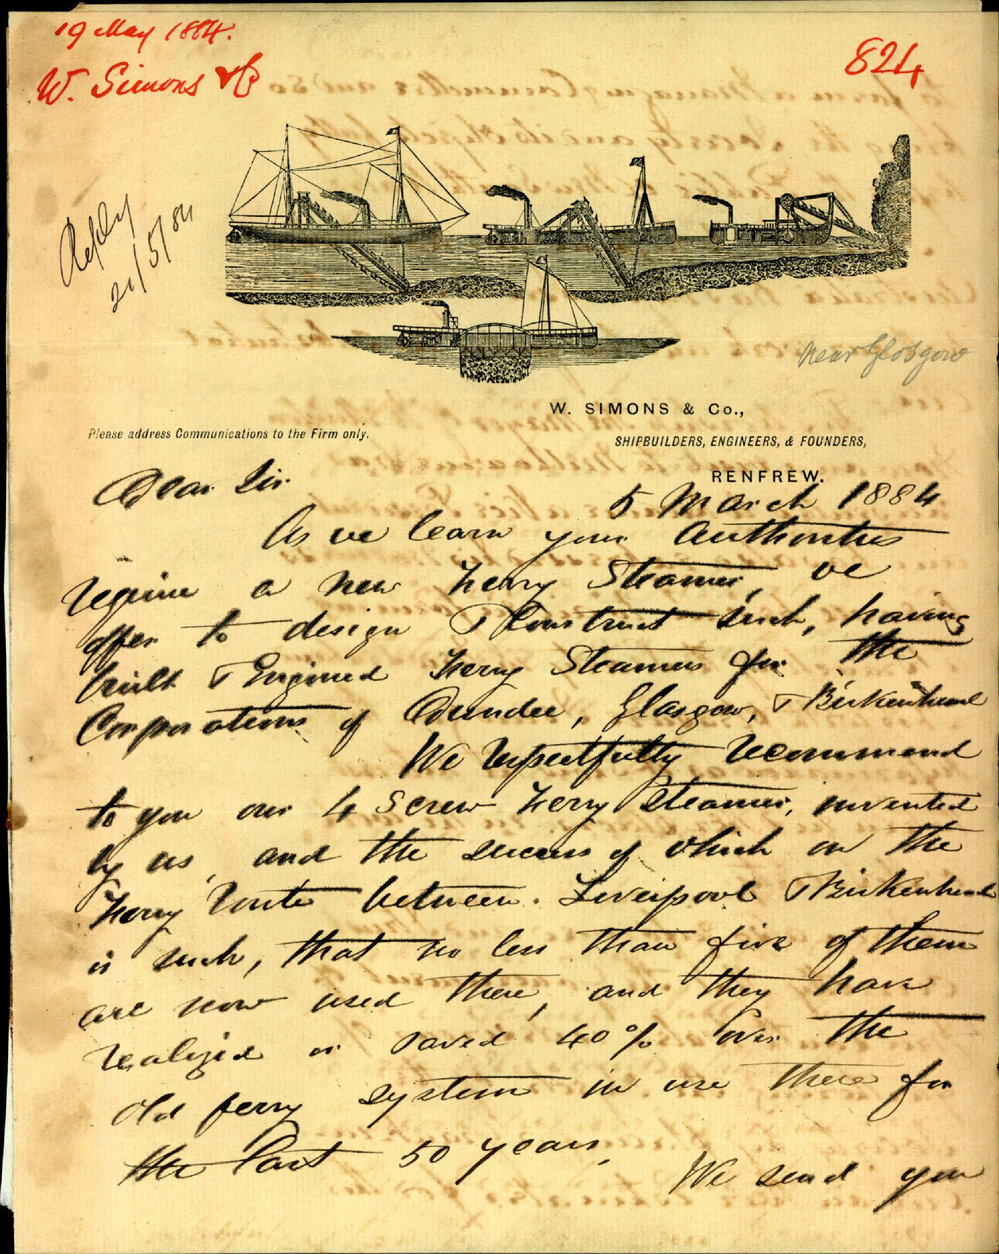 19 May 1884.
W. Simons & Co
824
Reply
21/5/84
near Glasgow
W. SIMONS & Co.,
Please address Communications to the Firm only.
SHIPBUILDERS, ENGINEERS, & FOUNDERS,
RENFREW.
5 March 1884
Dear Sir.
As we learn your Authorities
require a new Ferry Steamer, we
offer to design & Construct such, having
built & Engined Ferry Steamers for the
Corporations of Dundee, Glasgow, & Birkenhead
We respectfully recommend
to you our 4 Screw Ferry Steamer, invented
by us, and the success of which on the
Ferry Route between Liverpool & Birkenhead
is such, that no less than five of them
are now used there, and they have
realized or saved 40% over the
old ferry system in use there for
the last 50 years.
We send you